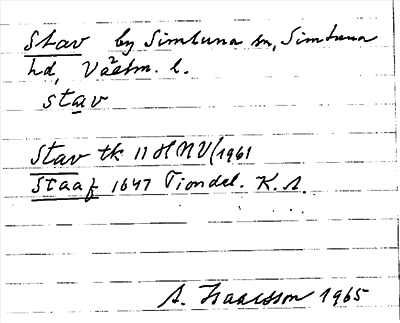 Stav by Simtuna sn, Simtuna
hd, Västm. l.
stav
Stav tk 11 H NV (1961
Staaf 1647 Tiondel. K.A.
A. Isaacsson 1965